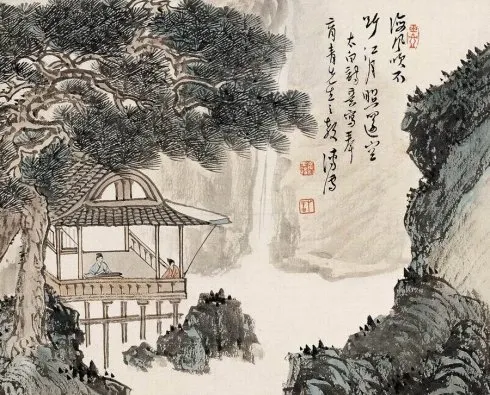 海風吹不
斷江月照還空
太白詩意寫奉
育青先生之教